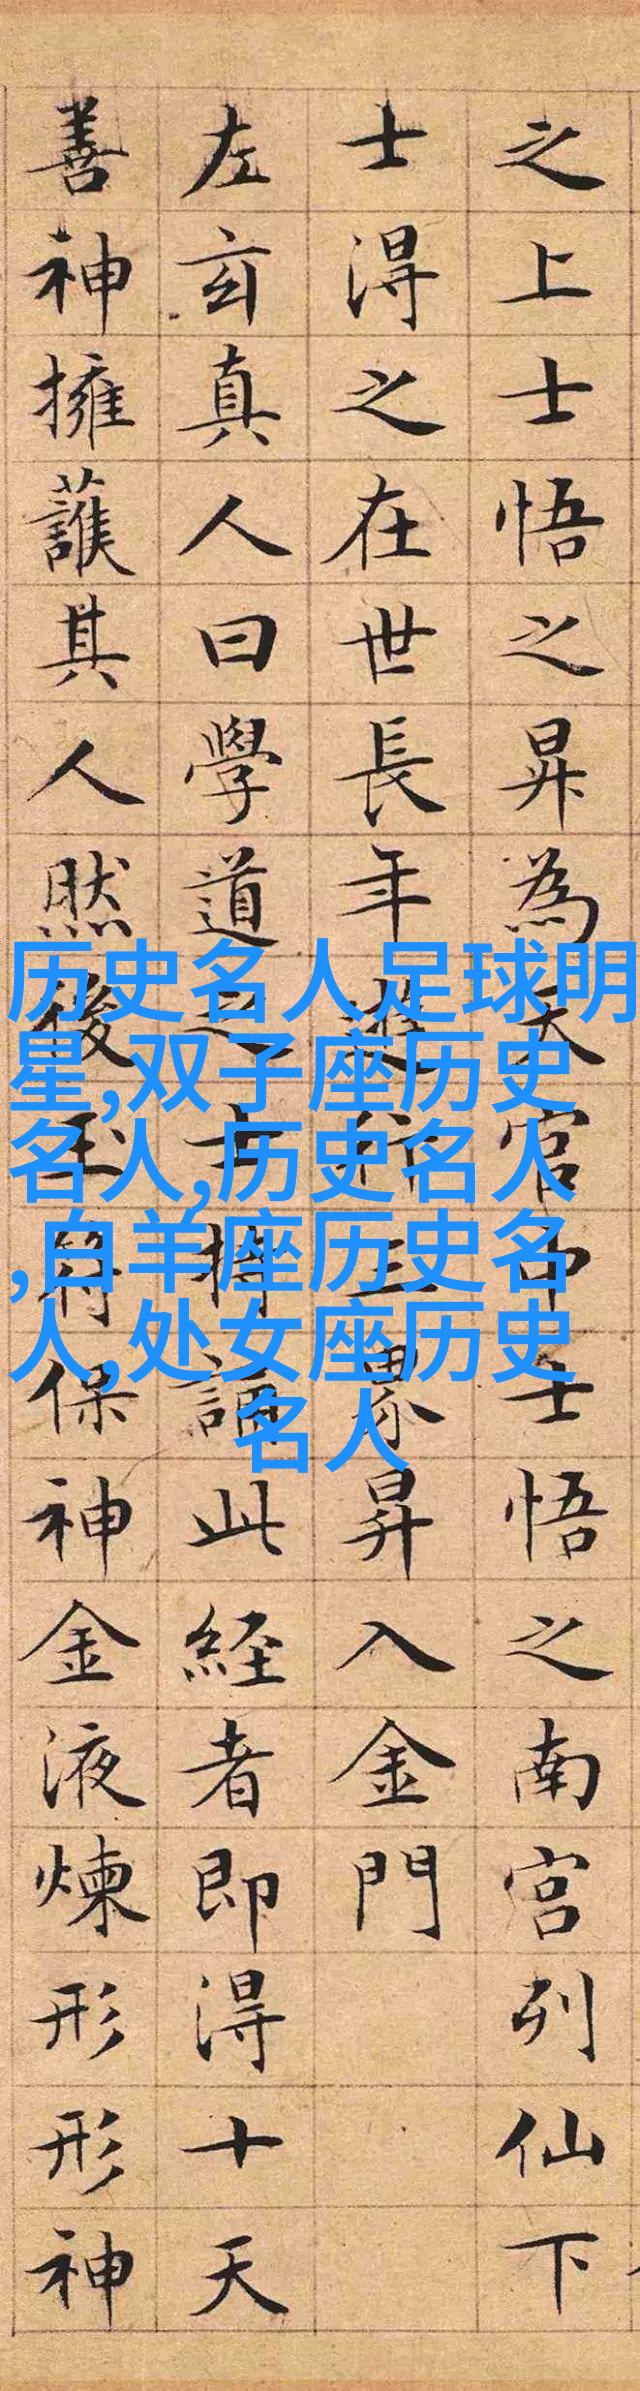 之上士悟之昇為天官中士悟之南宮列仙下
士得之在世長年遊行三界昇入金門
左玄真人曰學道之士持誦此経者即得十天
善神擁護其人然後玉符保神金液煉形形神
历史名人足球明
星,双子座历史
名人,历史名人
,白羊座历史名
人,处女座历史
名人